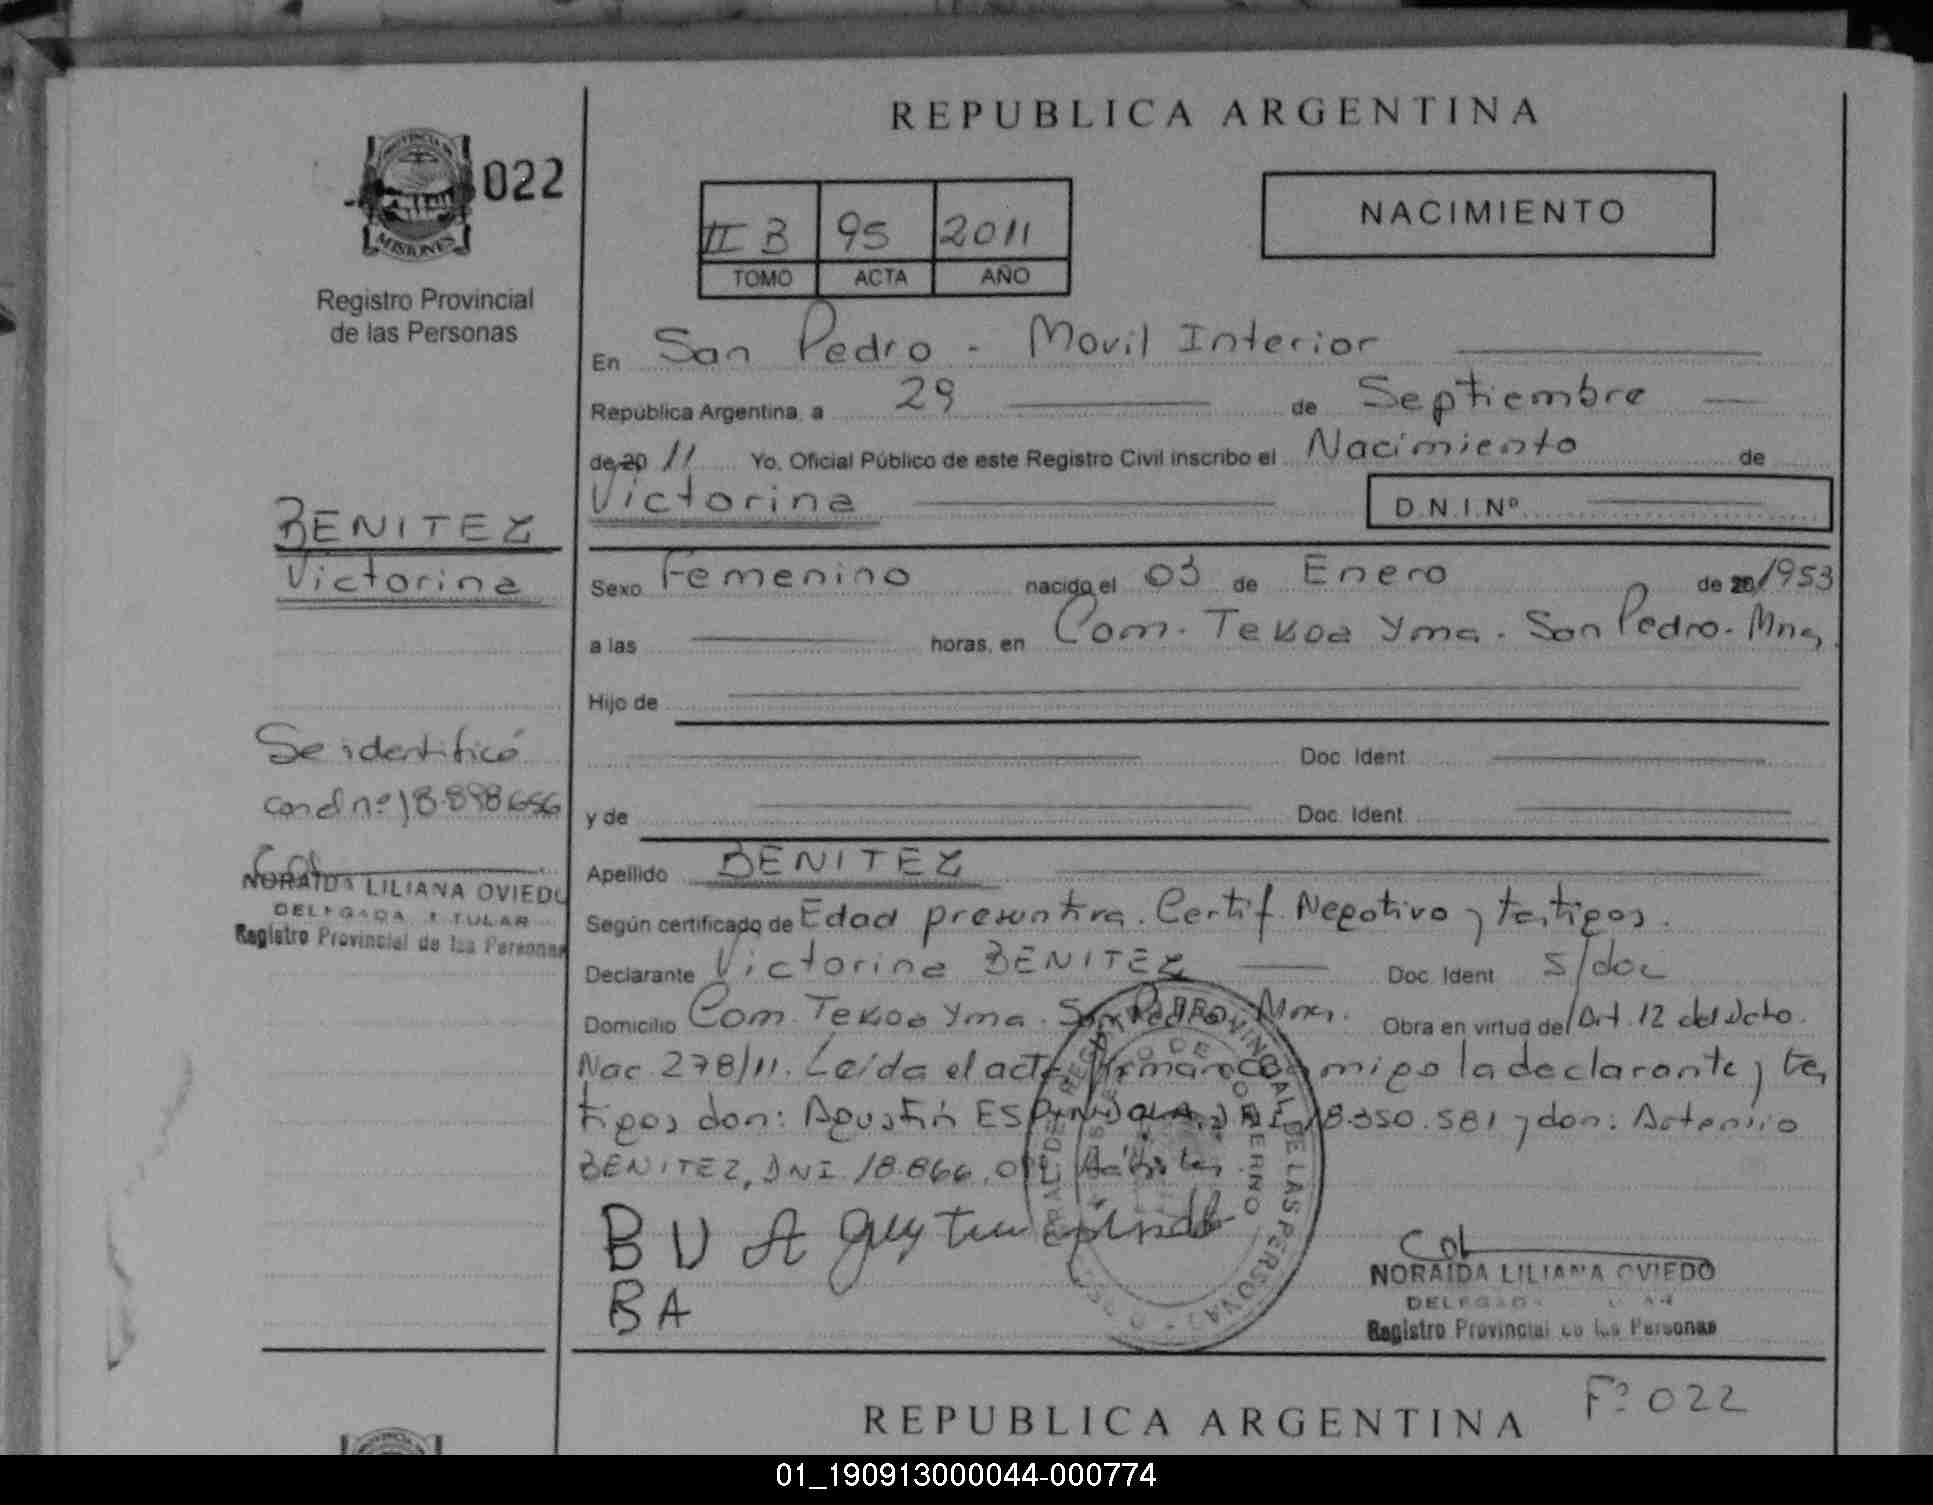 REPUBLICA ARGENTINA
PROVINCIA DE
MISIONES
022
Registro Provincial
de las Personas
II B 95 2011
TOMO ACTA AÑO
NACIMIENTO
En San Pedro - Movil Interior
República Argentina, a 29 de Septiembre
de 20 11 Yo, Oficial Público de este Registro Civil inscribo el Nacimiento de
Victorina D.N.I.Nº
BENITEZ
Victorina
Sexo Femenino nacido el 03 de Enero de 20 1953
a las horas, en Com. Tekoa Yma. San Pedro. Mnes
Hijo de
Doc. Ident.
y de Doc. Ident.
Se identificó
con el nº 18.898.656
NORAIDA LILIANA OVIEDO
DELEGADA TITULAR
Registro Provincial de las Personas
Apellido BENITEZ
Según certificado de Edad presuntiva. Certif. Negativo y testigos.
Declarante Victorina BENITEZ Doc. Ident. S/doc
Domicilio Com. Tekoa Yma. San Pedro Mnes. Obra en virtud del Art. 12 del Dcto.
Nac. 278/11. Leída el acta firman conmigo la declarante y tes
tigos don: Agustín ESPINDOLA, DNI 18.350.581 y don: Artemio
BENITEZ, DNI 18.866.
B V A
B A
REGISTRO PROVINCIAL DE LAS PERSONAS
NORAIDA LILIANA OVIEDO
DELEGADA
Registro Provincial de las Personas
Fº 022
REPUBLICA ARGENTINA
01_190913000044-000774